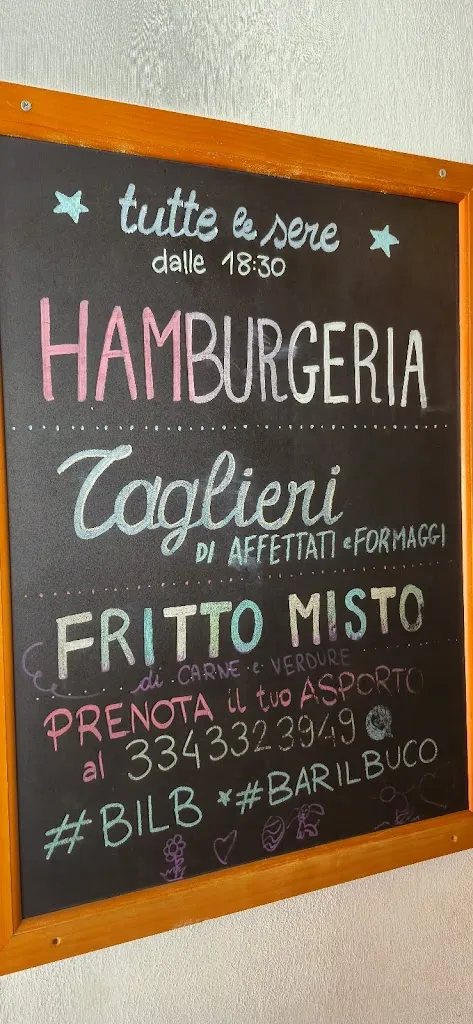 tutte le sere
dalle 18:30
HAMBURGERIA
Taglieri
DI AFFETTATI e FORMAGGI
FRITTO MISTO
di CARNE e VERDURE
PRENOTA il tuo ASPORTO
al 3343323949
#BILB * #BARILBUCO